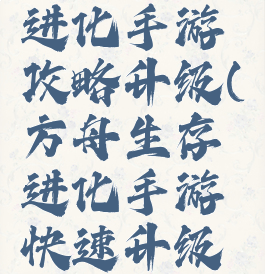 进化手游
攻略升级(
方舟生存
进化手游
快速升级